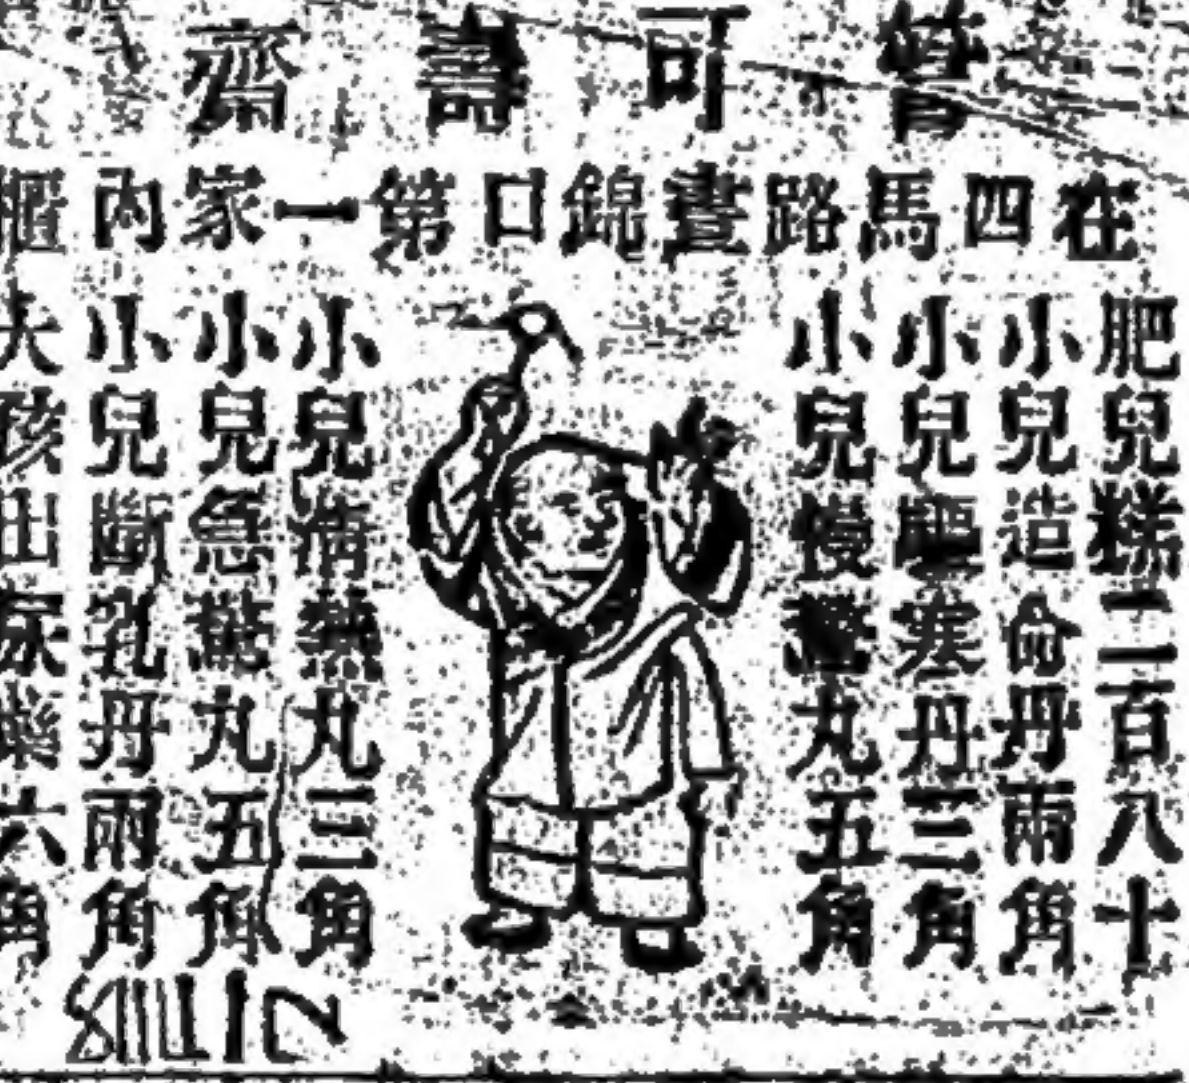 曾可壽齋
在四馬路晝錦口第一家內櫃
肥兒糕二百八十
小兒造命丹兩角
小兒驅寒丹三角
小兒慢驚丸五角
小兒清熱丸三角
小兒急驚丸五角
小兒斷乳丹兩角
大孩出尿藥六角